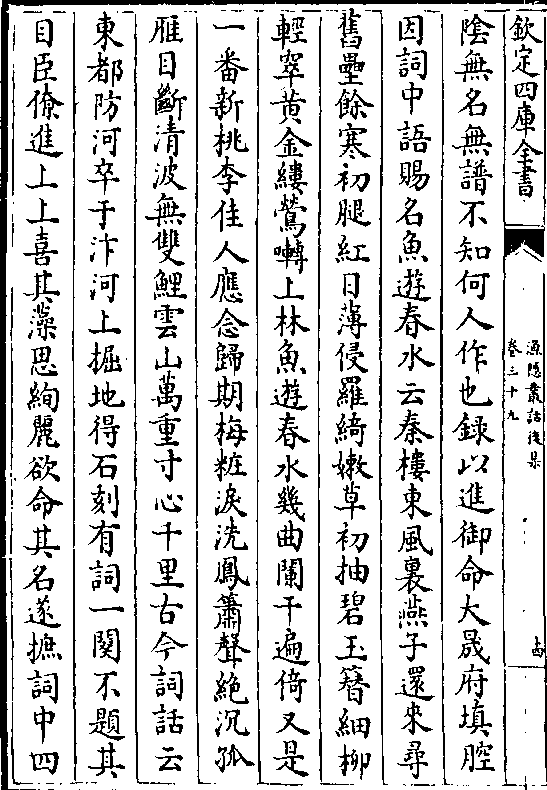 欽定四庫全書
漁隱叢話後集
卷三十九
陰無名無譜不知何人作也録以進御命大晟府填腔
因詞中語賜名魚遊春水云秦樓東風裏燕子還來尋
舊壘餘寒初腿紅日薄侵羅綺嫩草初抽碧玉簪細柳
輕窣黄金縷鶯囀上林魚遊春水幾曲闌干遍倚又是
一番新桃李佳人應念歸期梅粧淚洗鳳簫聲絶沉孤
雁目斷清波無雙鯉雲山萬重寸心千里古今詞話云
東都防河卒于汴河上掘地得石刻有詞一闋不題其
目臣僚進上上喜其藻思絢麗欲命其名遂摭詞中四